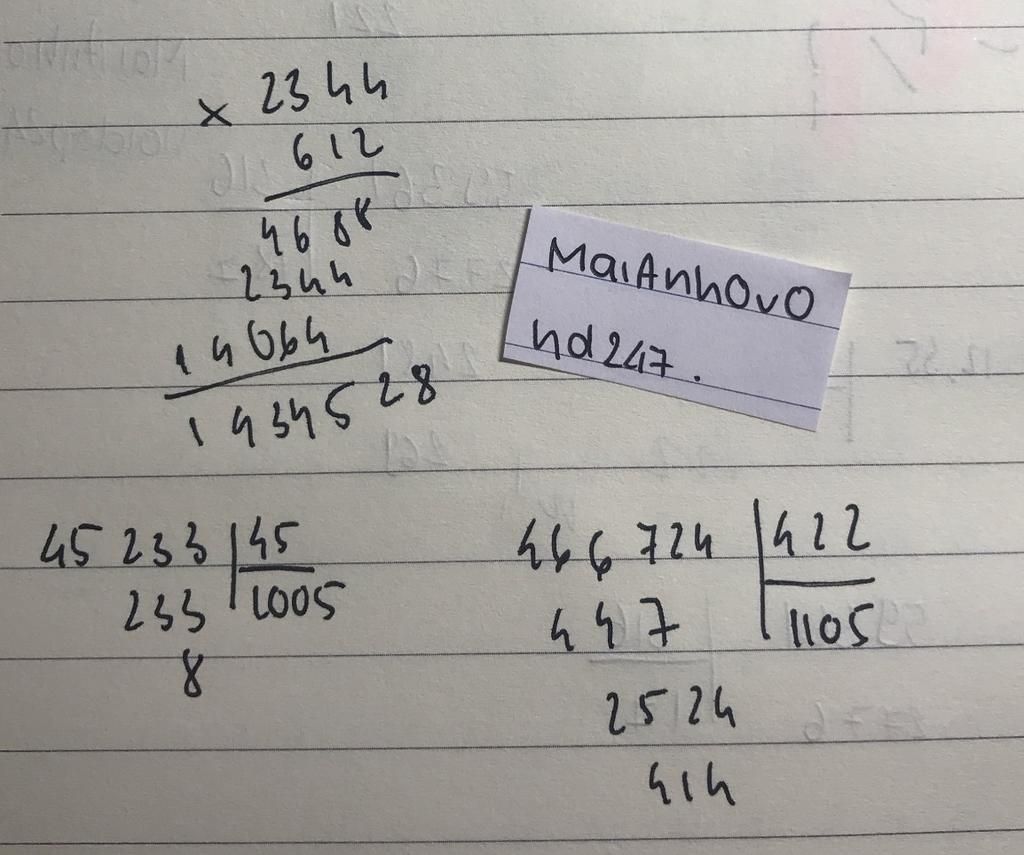 × 2344
612
4688
2344
14064
1434528
MaiAnhOvO
hd247.
45 233 | 45
233 1005
8
466 724 | 422
447 1105
2524
414